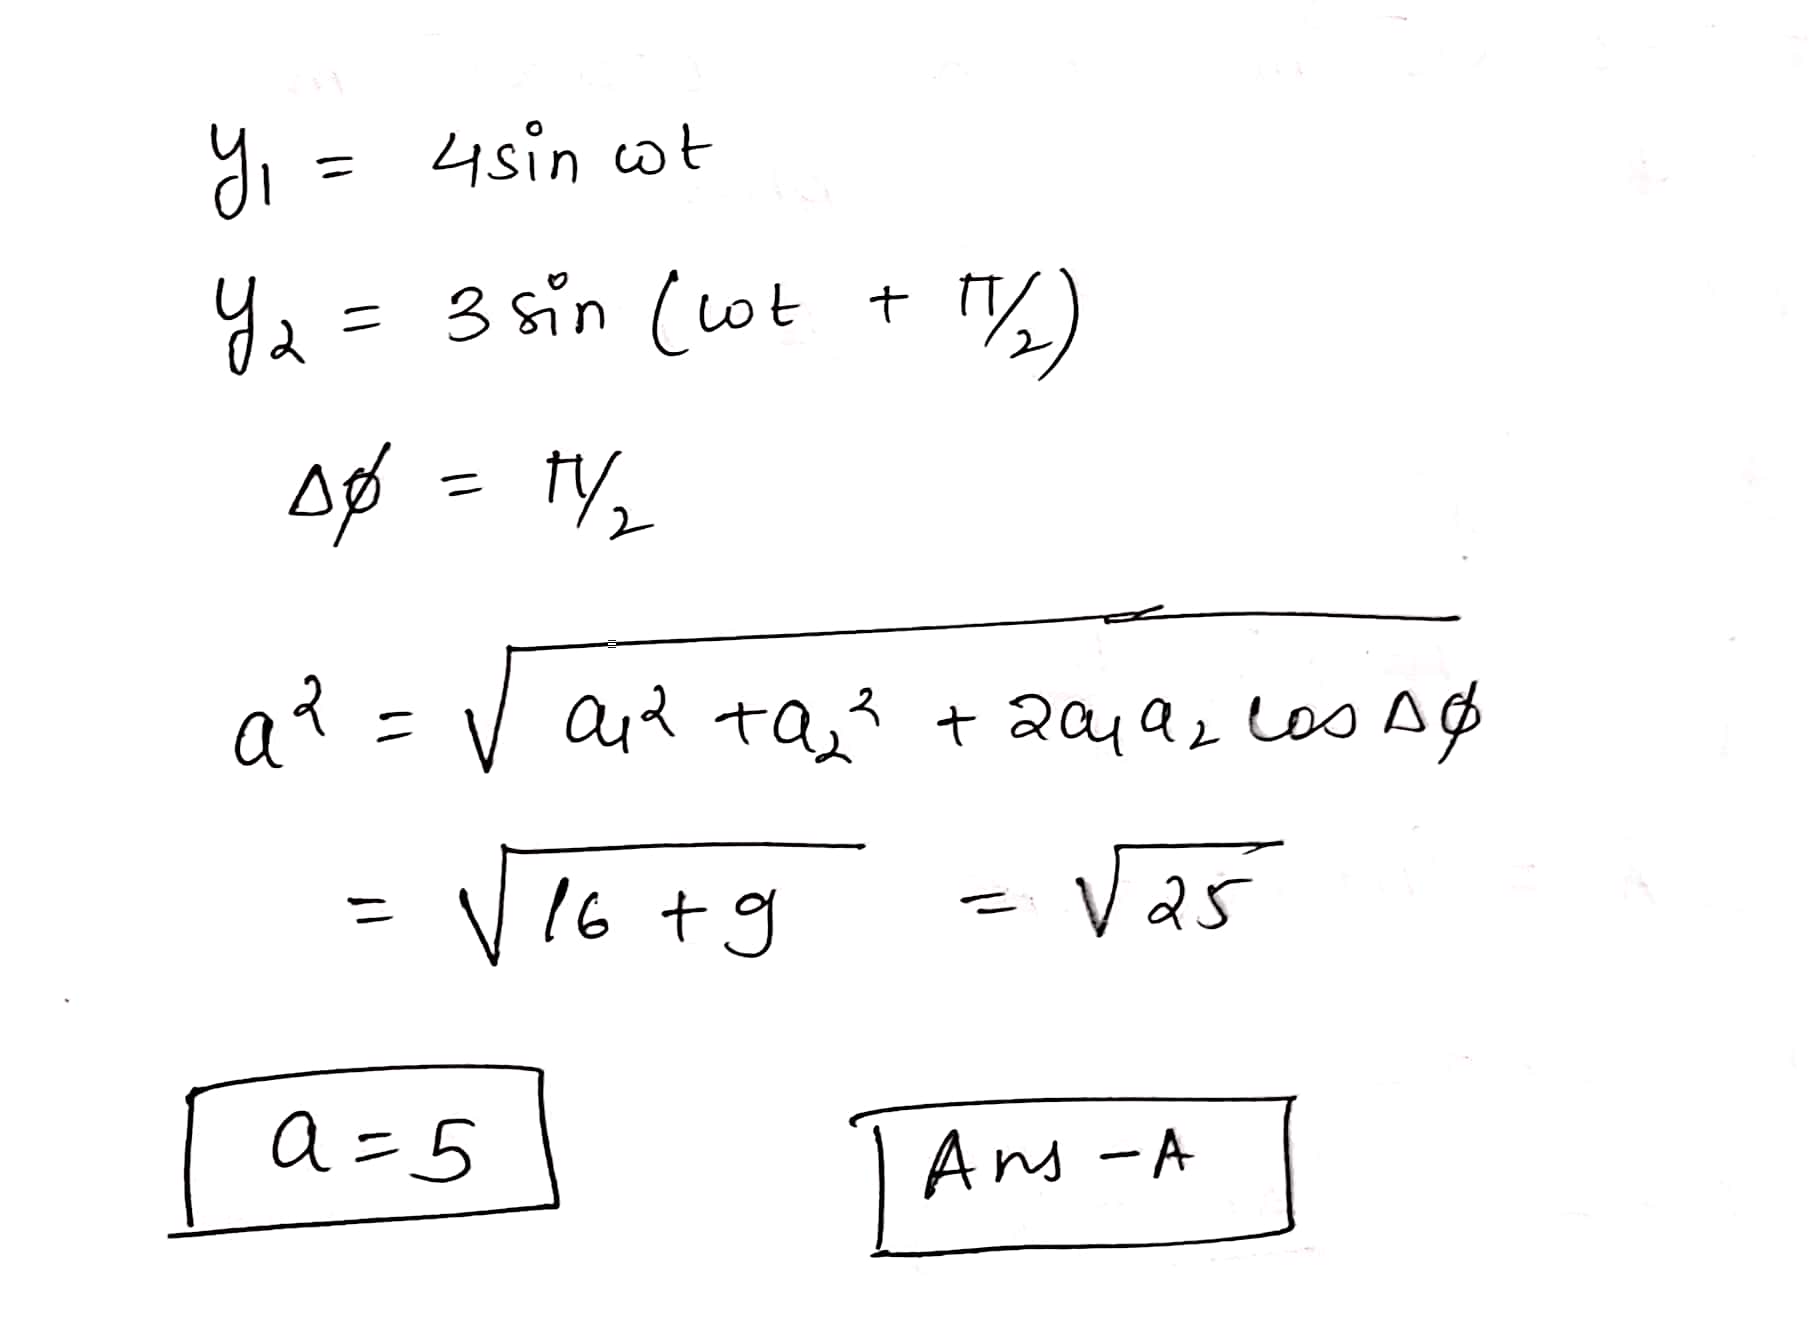 y₁ = 4sin ωt
y₂ = 3 sin (ωt + π/2)
Δϕ = π/2
a² = √(a₁² + a₂² + 2a₁a₂ cos Δϕ)
= √(16 + 9) = √25
a = 5 Ans - A